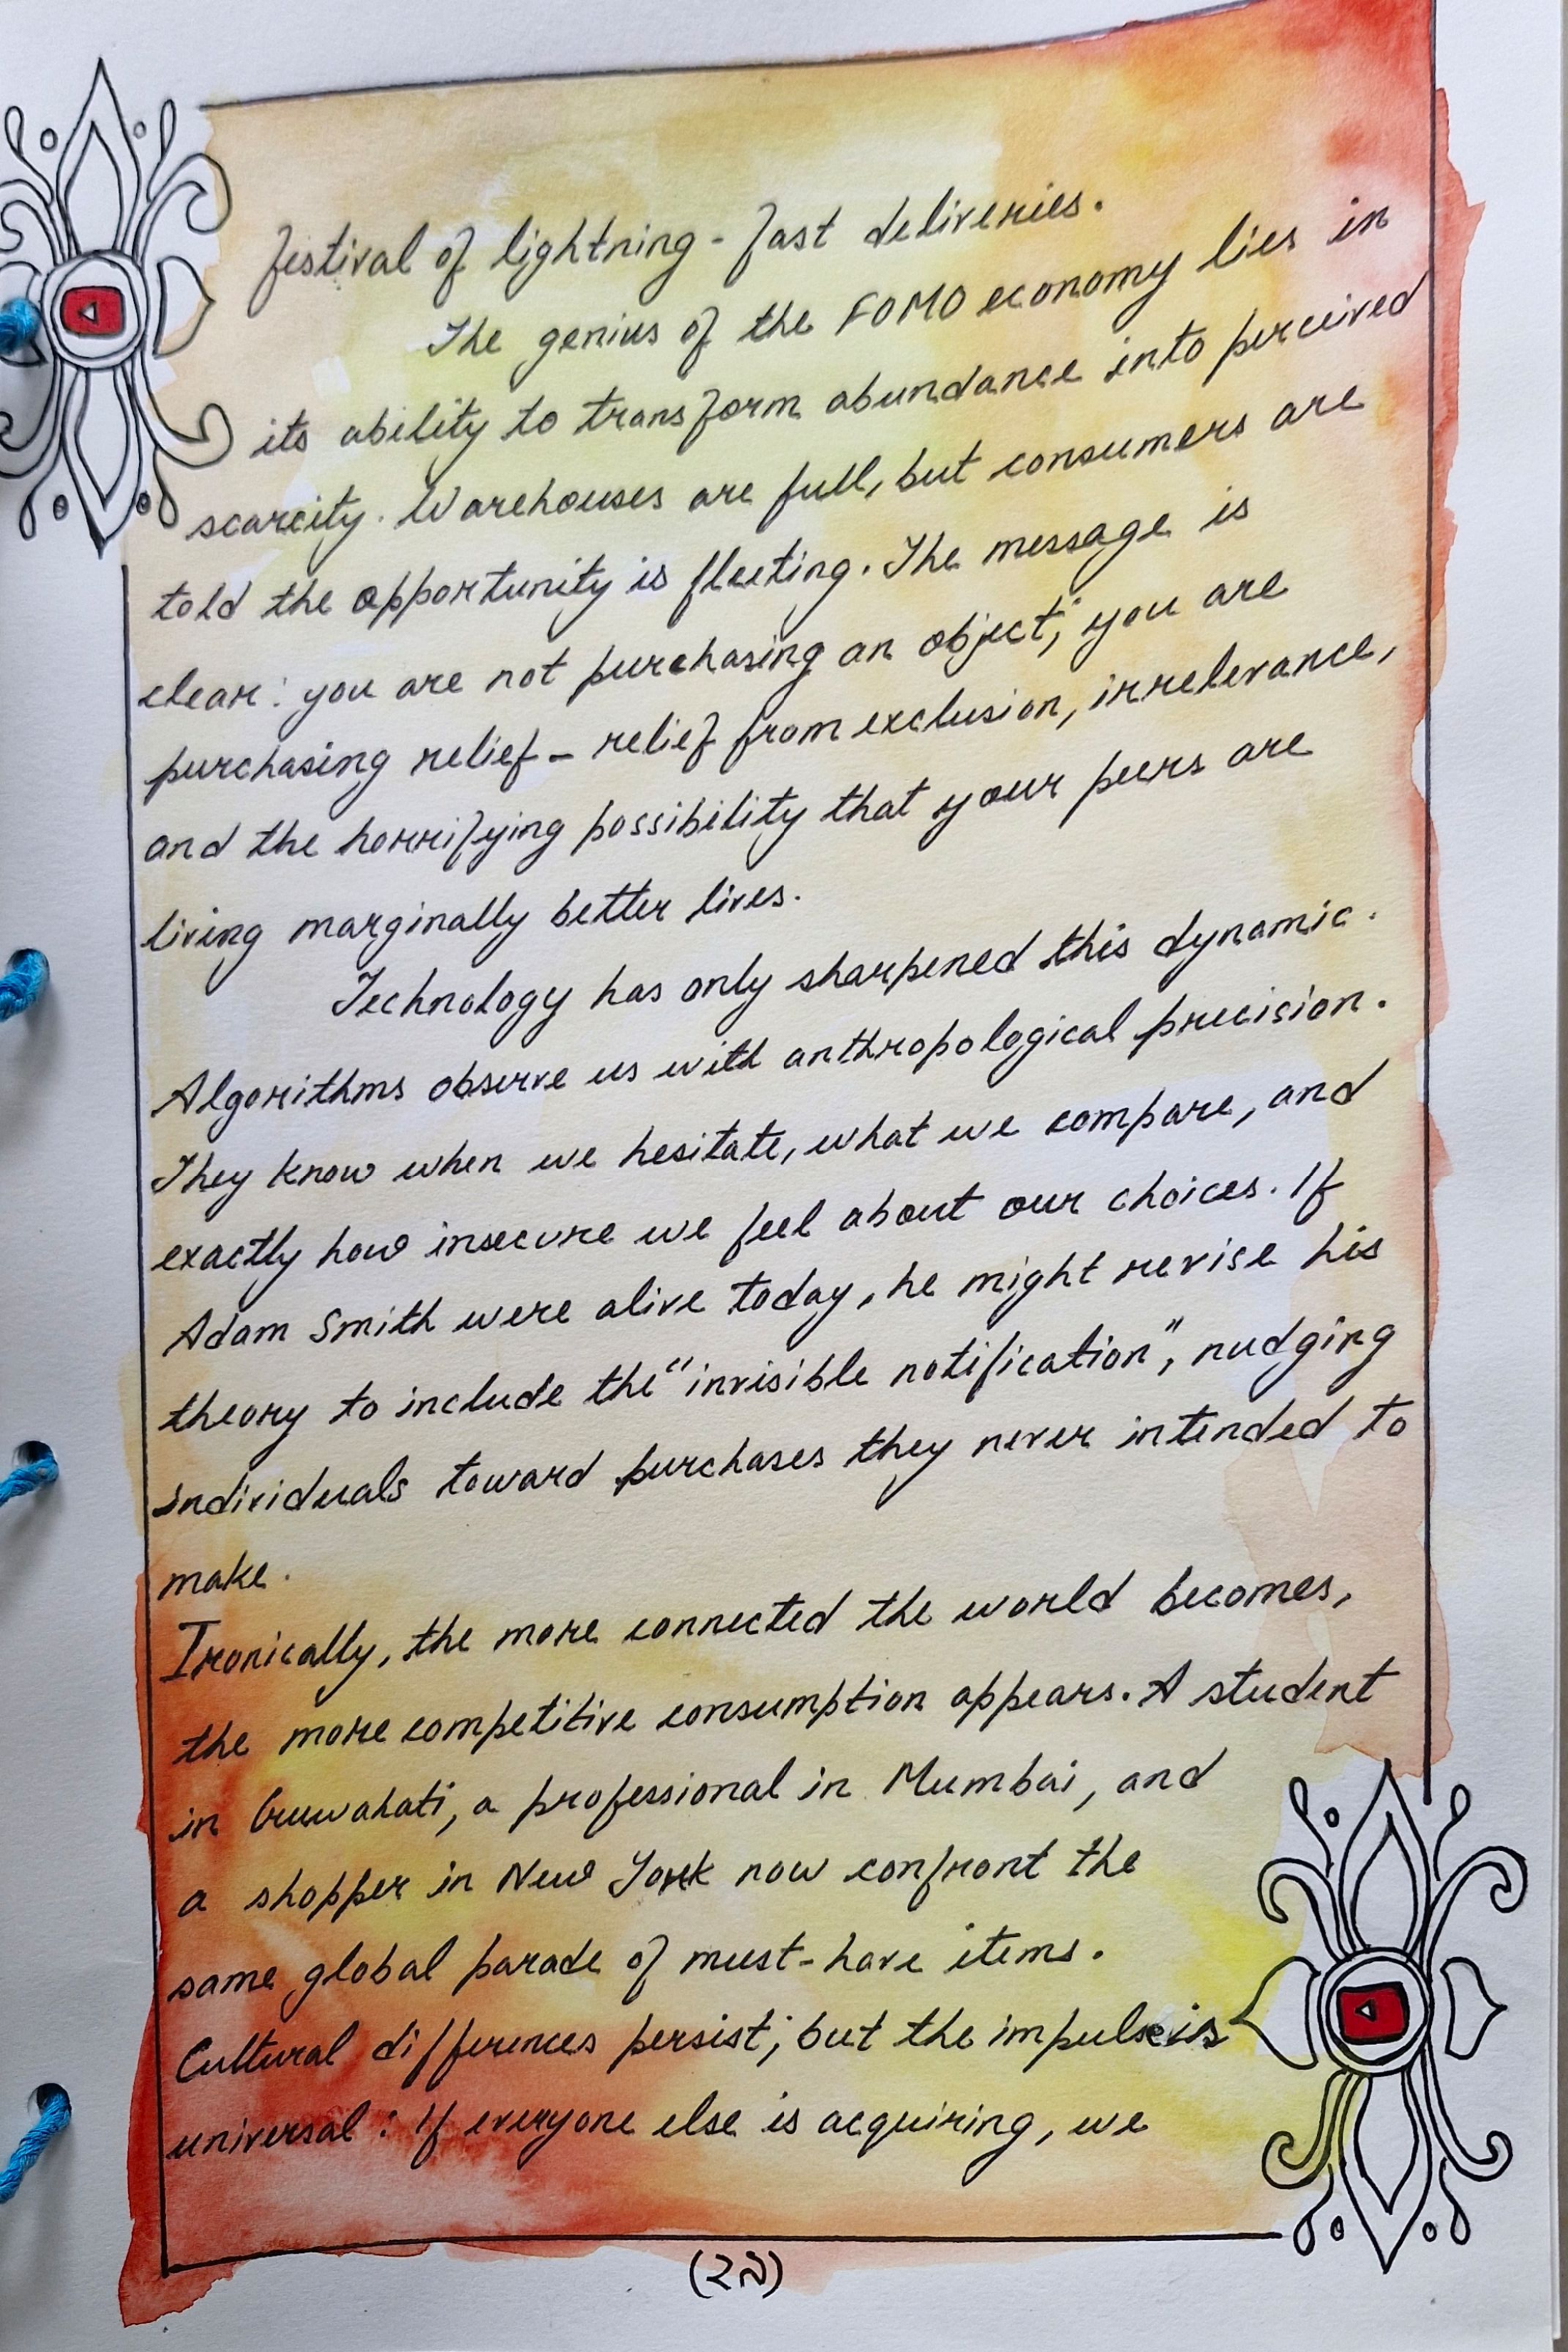 festival of lightning-fast deliveries.
The genius of the FOMO economy lies in
its ability to transform abundance into perceived
scarcity. Warehouses are full, but consumers are
told the opportunity is fleeting. The message is
clear: you are not purchasing an object; you are
purchasing relief - relief from exclusion, irrelevance,
and the horrifying possibility that your peers are
living marginally better lives.
Technology has only sharpened this dynamic.
Algorithms observe us with anthropological precision.
They know when we hesitate, what we compare, and
exactly how insecure we feel about our choices. If
Adam Smith were alive today, he might revise his
theory to include the "invisible notification", nudging
individuals toward purchases they never intended to
make.
Ironically, the more connected the world becomes,
the more competitive consumption appears. A student
in Guwahati, a professional in Mumbai, and
a shopper in New York now confront the
same global parade of must-have items.
Cultural differences persist; but the impulse is
universal: If everyone else is acquiring, we
(২৯)